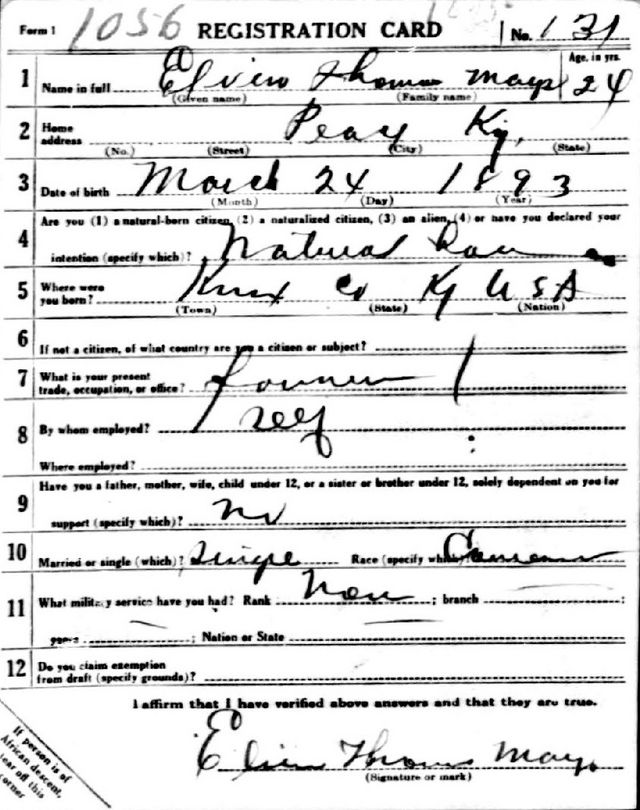 Form 1 1056 REGISTRATION CARD No. 131
1 Name in full Elvin Thomas Mays Age, in yrs. 24
(Given name) (Family name)
2 Home address Peay Ky,
(No.) (Street) (City) (State)
3 Date of birth March 24 1893
(Month) (Day) (Year)
4 Are you (1) a natural-born citizen, (2) a naturalized citizen, (3) an alien, (4) or have you declared your
intention (specify which)? Natural
5 Where were you born? Knox Co Ky U S A
(Town) (State) (Nation)
6 If not a citizen, of what country are you a citizen or subject?
7 What is your present trade, occupation, or office? farmer
8 By whom employed? self
Where employed?
9 Have you a father, mother, wife, child under 12, or a sister or brother under 12, solely dependent on you for
support (specify which)? No
10 Married or single (which)? Single Race (specify which)?
11 What military service have you had? Rank None ; branch ;
years ; Nation or State
12 Do you claim exemption
from draft (specify grounds)?
I affirm that I have verified above answers and that they are true.
Elvin Thomas Mays
(Signature or mark)
If person is of
African descent,
tear off this
corner